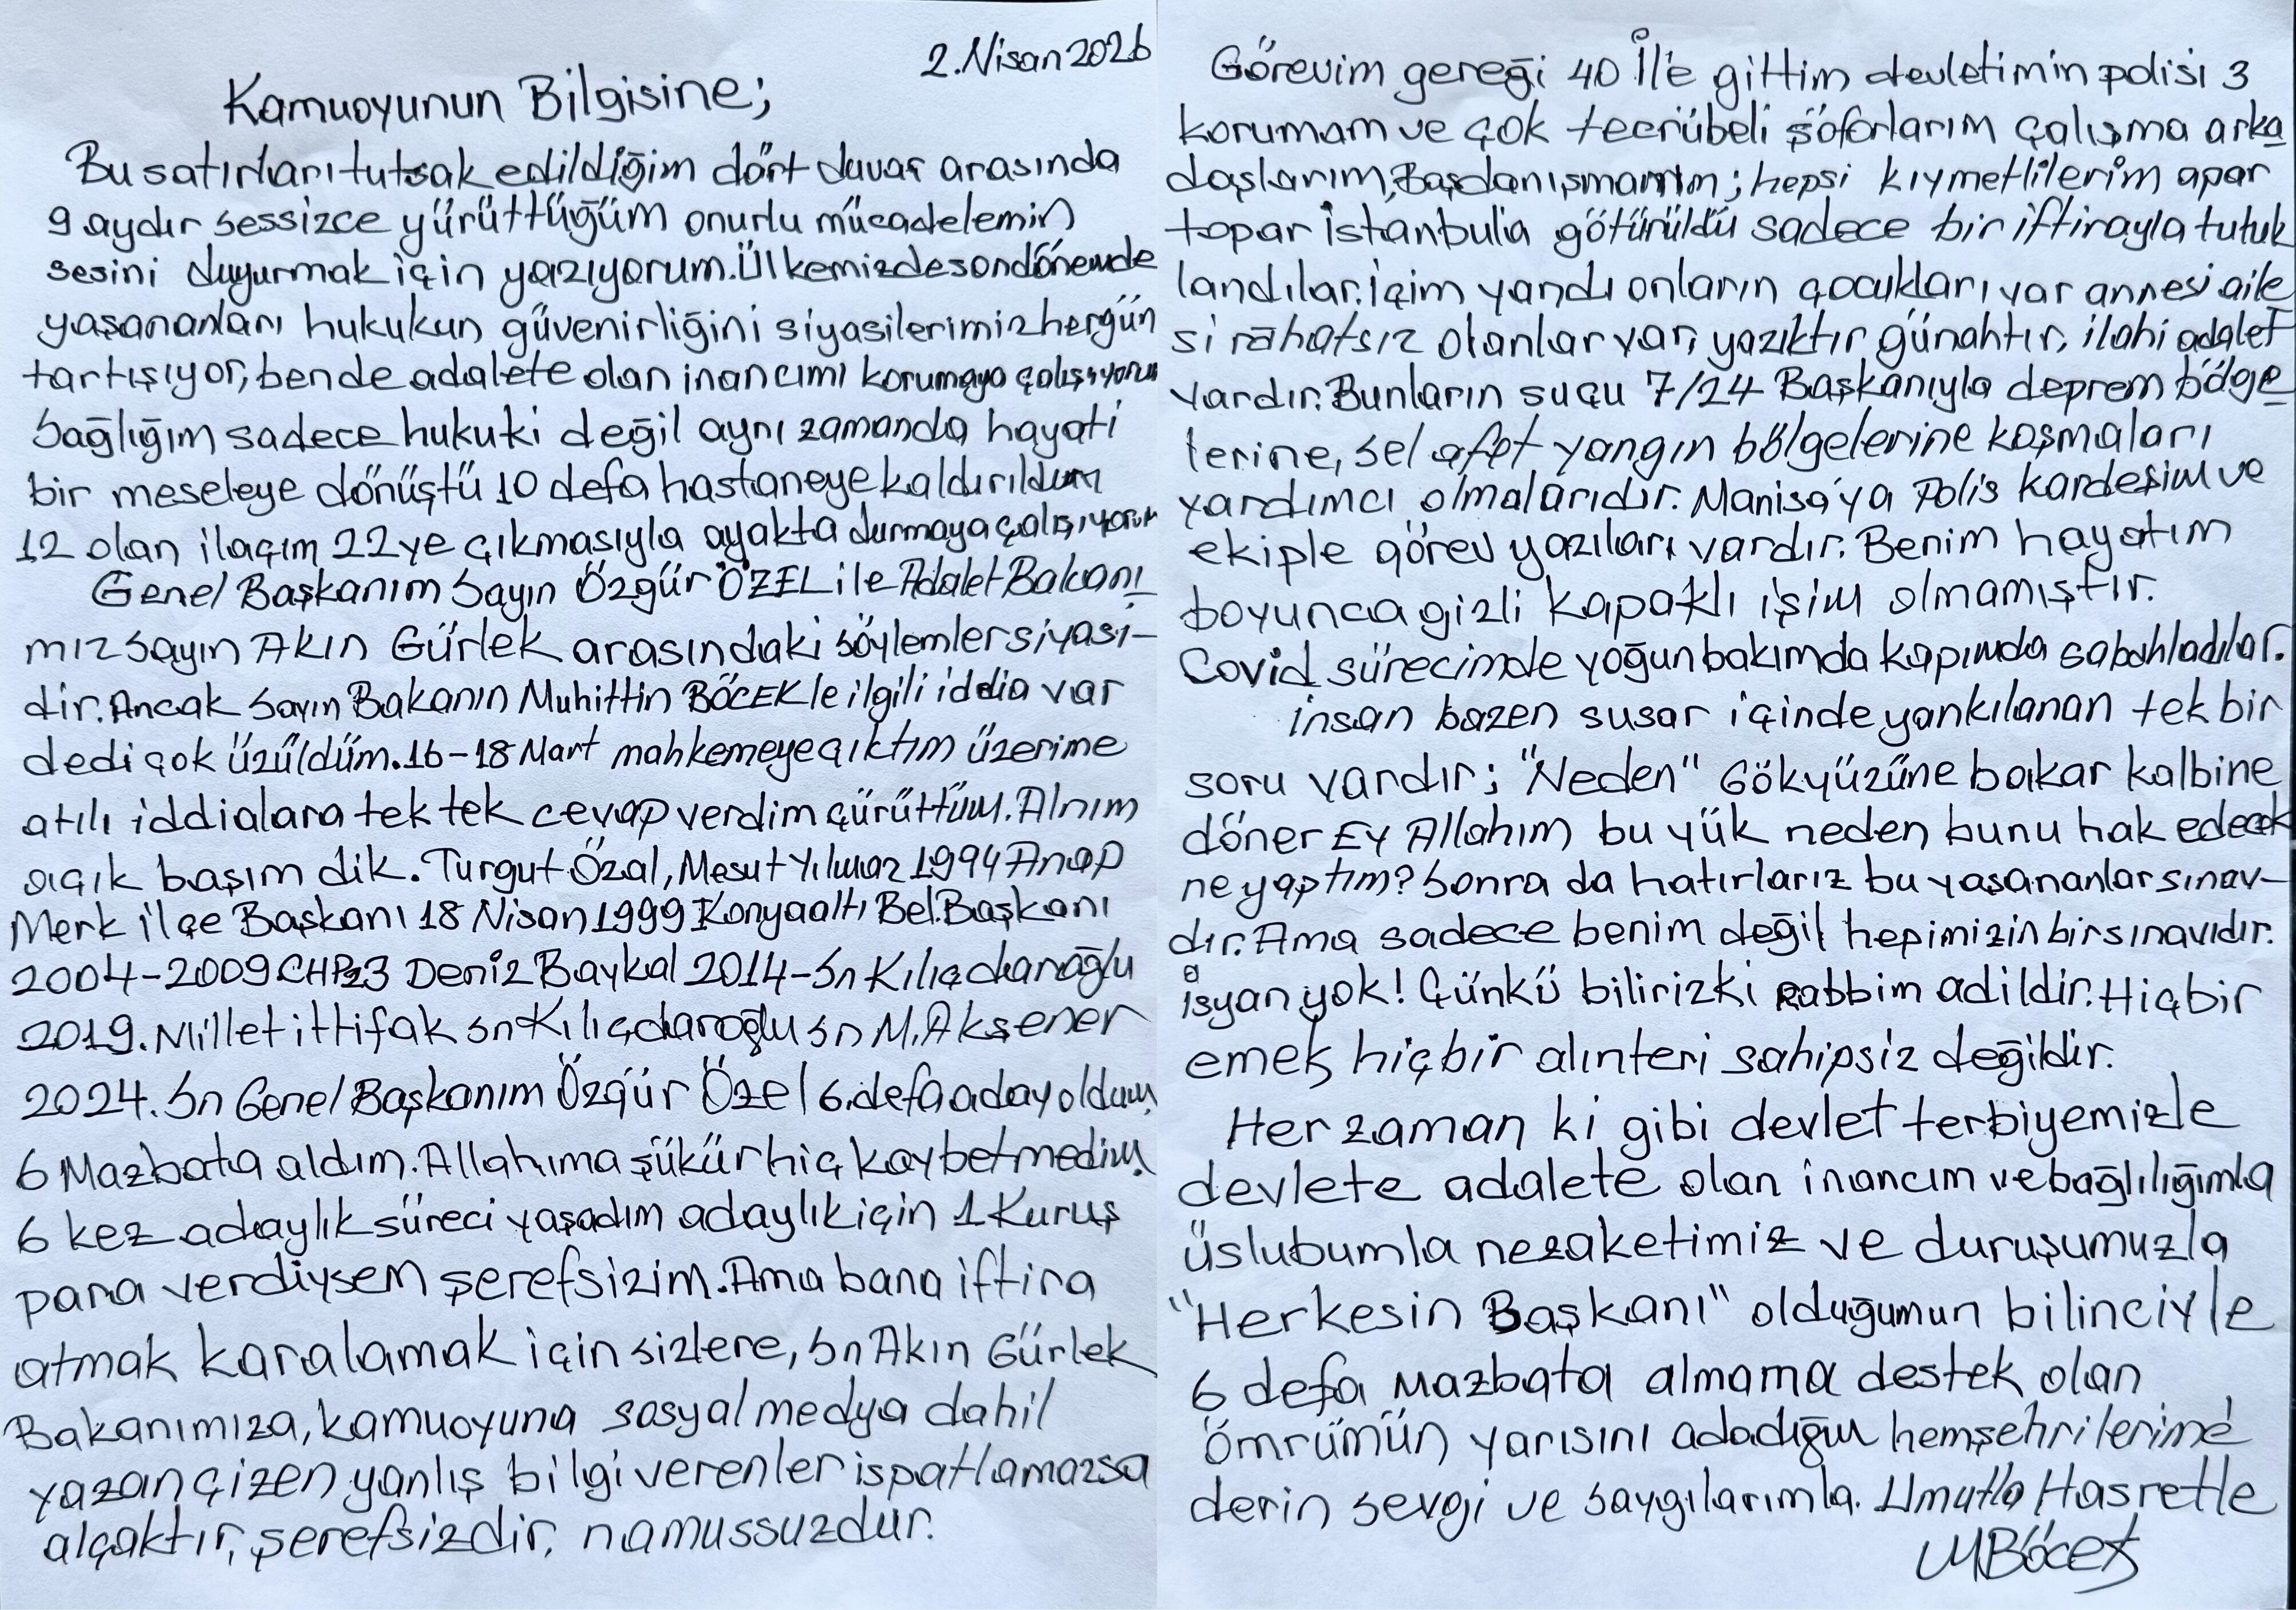 2.Nisan 2026
Kamuoyunun Bilgisine;
Bu satırları tutsak edildiğim dört duvar arasında
9 aydır sessizce yürüttüğüm onurlu mücadelemin
sesini duyurmak için yazıyorum. Ülkemizde son dönemde
yaşananları hukukun güvenirliğini siyasilerimiz hergün
tartışıyor, bende adalete olan inancımı korumaya çalışıyorum
Sağlığım sadece hukuki değil aynı zamanda hayati
bir meseleye dönüştü 10 defa hastaneye kaldırıldım
12 olan ilaçım 22 ye çıkmasıyla ayakta durmaya çalışıyorum
Genel Başkanım Sayın Özgür ÖZEL ile Adalet Bakanı
mız Sayın Akın Gürlek arasındaki söylemler siyasi-
dir. Ancak Sayın Bakanın Muhittin BÖCEKle ilgili iddia var
dedi çok üzüldüm. 16-18 Mart mahkemeye çıktım üzerime
atılı iddialara tek tek cevap verdim çürüttüm. Alnım
açık başım dik. Turgut Özal, Mesut Yılmaz 1994 Anap
Merk ilçe Başkanı 18 Nisan 1999 Konyaaltı Bel.Başkanı
2004-2009 CHP Deniz Baykal 2014-Sn Kılıçdaroğlu
2019. Millet ittifak Sn Kılıçdaroğlu Sn M.Akşener
2024. Sn Genel Başkanım Özgür Özel 6.defa aday oldum
6 Mazbata aldım. Allahıma şükür hiç kaybetmedim
6 kez adaylık süreci yaşadım adaylık için 1 Kuruş
para verdiysem şerefsizim. Ama bana iftira
atmak karalamak için sizlere, Sn Akın Gürlek
Bakanımıza, kamuoyuna sosyal medya dahil
yazan çizen yanlış bilgi verenler ispatlamazsa
alçaktır, şerefsizdir, namussuzdur.
Görevim gereği 40 İl'e gittim devletimin polisi 3
korumam ve çok tecrübeli şoförlarım çalışma arka
daşlarım, Başdanışmanım; hepsi kıymetlilerim apar
topar İstanbul'a götürüldü sadece bir iftirayla tutuk
landılar. içim yandı onların çocukları var annesi aile
si rahatsız olanlar var, yazıktır günahtır, ilahi adalet
vardır. Bunların suçu 7/24 Başkanıyla deprem bölge
lerine, sel afet yangın bölgelerine koşmaları
yardımcı olmalarıdır. Manisa'ya Polis kardeşim ve
ekiple görev yazıları vardır. Benim hayatım
boyunca gizli kapaklı işim olmamıştır.
Covid sürecimde yoğun bakımda kapımda sabahladılar.
insan bazen susar içinde yankılanan tek bir
soru vardır; "Neden" Gökyüzüne bakar kalbine
döner Ey Allahım bu yük neden bunu hak edecek
ne yaptım? Sonra da hatırlarız bu yaşananlar sınav-
dır. Ama sadece benim değil hepimizin bir sınavıdır.
isyan yok! Çünkü bilirizki Rabbim adildir. Hiçbir
emek hiçbir alınteri sahipsiz değildir.
Her zaman ki gibi devlet terbiyemizle
devlete adalete olan inancım ve bağlılığımla
üslubumla nezaketimiz ve duruşumuzla
"Herkesin Başkanı" olduğumun bilinciyle
6 defa Mazbata almama destek olan
ömrümün yarısını adadığım hemşehrilerime
derin sevgi ve saygılarımla. Umutla Hasretle
MBöcek